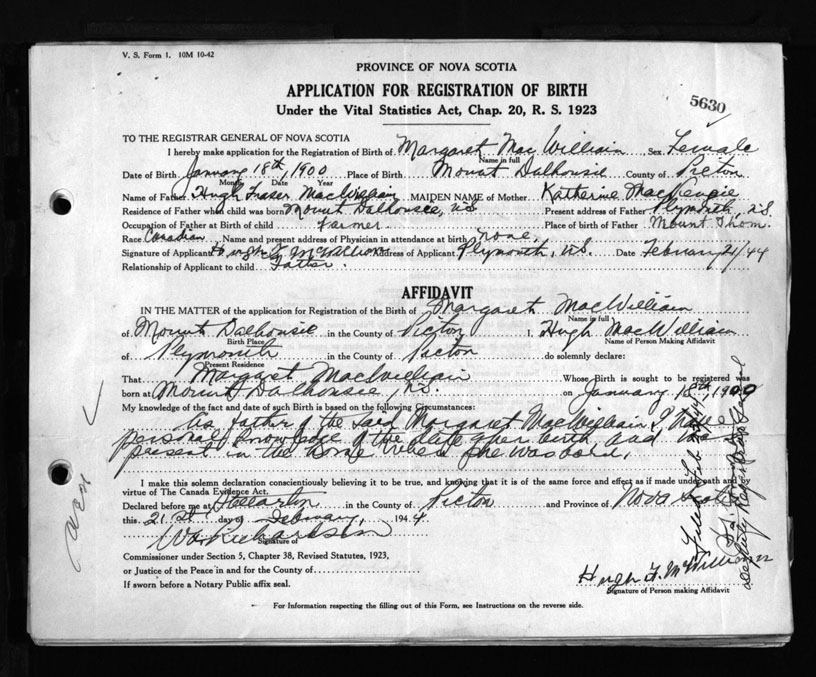 V. S. Form 1. 10M 10-42
PROVINCE OF NOVA SCOTIA
APPLICATION FOR REGISTRATION OF BIRTH
Under the Vital Statistics Act, Chap. 20, R. S. 1923
5630
TO THE REGISTRAR GENERAL OF NOVA SCOTIA
I hereby make application for the Registration of Birth of Margaret MacWilliam Sex Female
Name in full
Date of Birth January 18th, 1900 Place of Birth Mount Dalhousie County of Pictou
Month Date Year
Name of Father Hugh Fraser MacWilliam MAIDEN NAME of Mother Katherine MacKenzie
Residence of Father when child was born Mount Dalhousie, N.S. Present address of Father Plymouth, N.S.
Occupation of Father at Birth of child Farmer Place of birth of Father Mount Thom.
Race Canadian Name and present address of Physician in attendance at birth none.
Signature of Applicant Hugh F McWilliam Address of Applicant Plymouth, N.S. Date February 21/44
Relationship of Applicant to child Father.
AFFIDAVIT
IN THE MATTER of the application for Registration of the Birth of Margaret MacWilliam
Name in full
of Mount Dalhousie in the County of Pictou I, Hugh MacWilliam
Birth Place Name of Person Making Affidavit
of Plymouth in the County of Pictou do solemnly declare:
Present Residence
That Margaret MacWilliam Whose Birth is sought to be registered was
born at Mount Dalhousie, N.S. on January 18th, 1900
My knowledge of the fact and date of such Birth is based on the following Circumstances:
As father of the said Margaret MacWilliam I have
personal knowledge of the date of her birth and was
present in the home when she was born.
I make this solemn declaration conscientiously believing it to be true, and knowing that it is of the same force and effect as if made under oath and by
virtue of The Canada Evidence Act.
Declared before me at Stellarton in the County of Pictou and Province of Nova Scotia
this 21st day of February, 1944
Signature of
Commissioner under Section 5, Chapter 38, Revised Statutes, 1923,
or Justice of the Peace in and for the County of
If sworn before a Notary Public affix seal.
Hugh F. McWilliam
Signature of Person making Affidavit
For Information respecting the filling out of this Form, see Instructions on the reverse side.